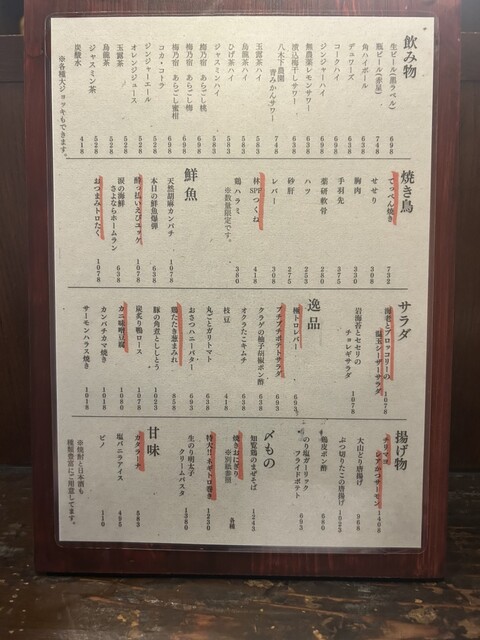 飲み物
生ビール(黒ラベル) 698
瓶ビール(赤星) 748
角ハイボール 638
デュワーズ 638
コークハイ 698
ジンジャーハイ 698
無農薬レモンサワー 638
漬込梅干しサワー 638
八木下農園
青みかんサワー 748
玉露茶ハイ 583
烏龍茶ハイ 583
ひげ茶ハイ 583
ジャスミンハイ 583
梅乃宿 あらごし桃 698
梅乃宿 あらごし梅 698
梅乃宿 あらごし蜜柑 698
コカ・コーラ 528
ジンジャーエール 528
オレンジジュース 528
玉露茶 528
烏龍茶 528
ジャスミン茶 528
炭酸水 418
※各種大ジョッキもできます。
焼き鳥
てっぺん焼き 732
せせり 308
胸肉 330
手羽先 375
薬研軟骨 280
ハツ 253
砂肝 275
レバー 308
林SPFつくね 418
鶏ハラミ 380
※数量限定です。
鮮魚
天然胡麻カンパチ 1078
本日の鮮魚爆弾 638
酔っ払いえびユッケ 1078
涙の海鮮
さよならホームラン 638
おつまみトロたく 1078
サラダ
海老とブロッコリーの
温玉シーザーサラダ 1078
岩海苔とセセリの
チョレギサラダ 1078
逸品
極トロレバー 693
プチプチポテトサラダ 693
クラゲの柚子胡椒ポン酢 638
オクラたこキムチ 638
枝豆 418
丸ごとガリトマト 638
おさつハニーバター 693
鶏たたき葱まみれ 858
豚の角煮としとう 1023
炭炙り鴨ロース 1078
カニ味噌豆腐 693
カンパチカマ焼き 1018
サーモンハラス焼き 1018
揚げ物
チリマヨ
レアカツサーモン 1408
大山どり唐揚げ 968
ぶつ切りたこの唐揚げ 1023
鶏皮ポン酢 680
のり塩ガーリック
フライドポテト 693
〆もの
知覧鶏のまぜそば 1243
焼きおにぎり
※別紙参照 各種
特大!!ネギトロ巻き 1230
生のり明太子
クリームパスタ 1380
甘味
カタラーナ 583
塩バニラアイス 495
ピノ 110
※焼酎と日本酒も
種類豊富にご用意してます。